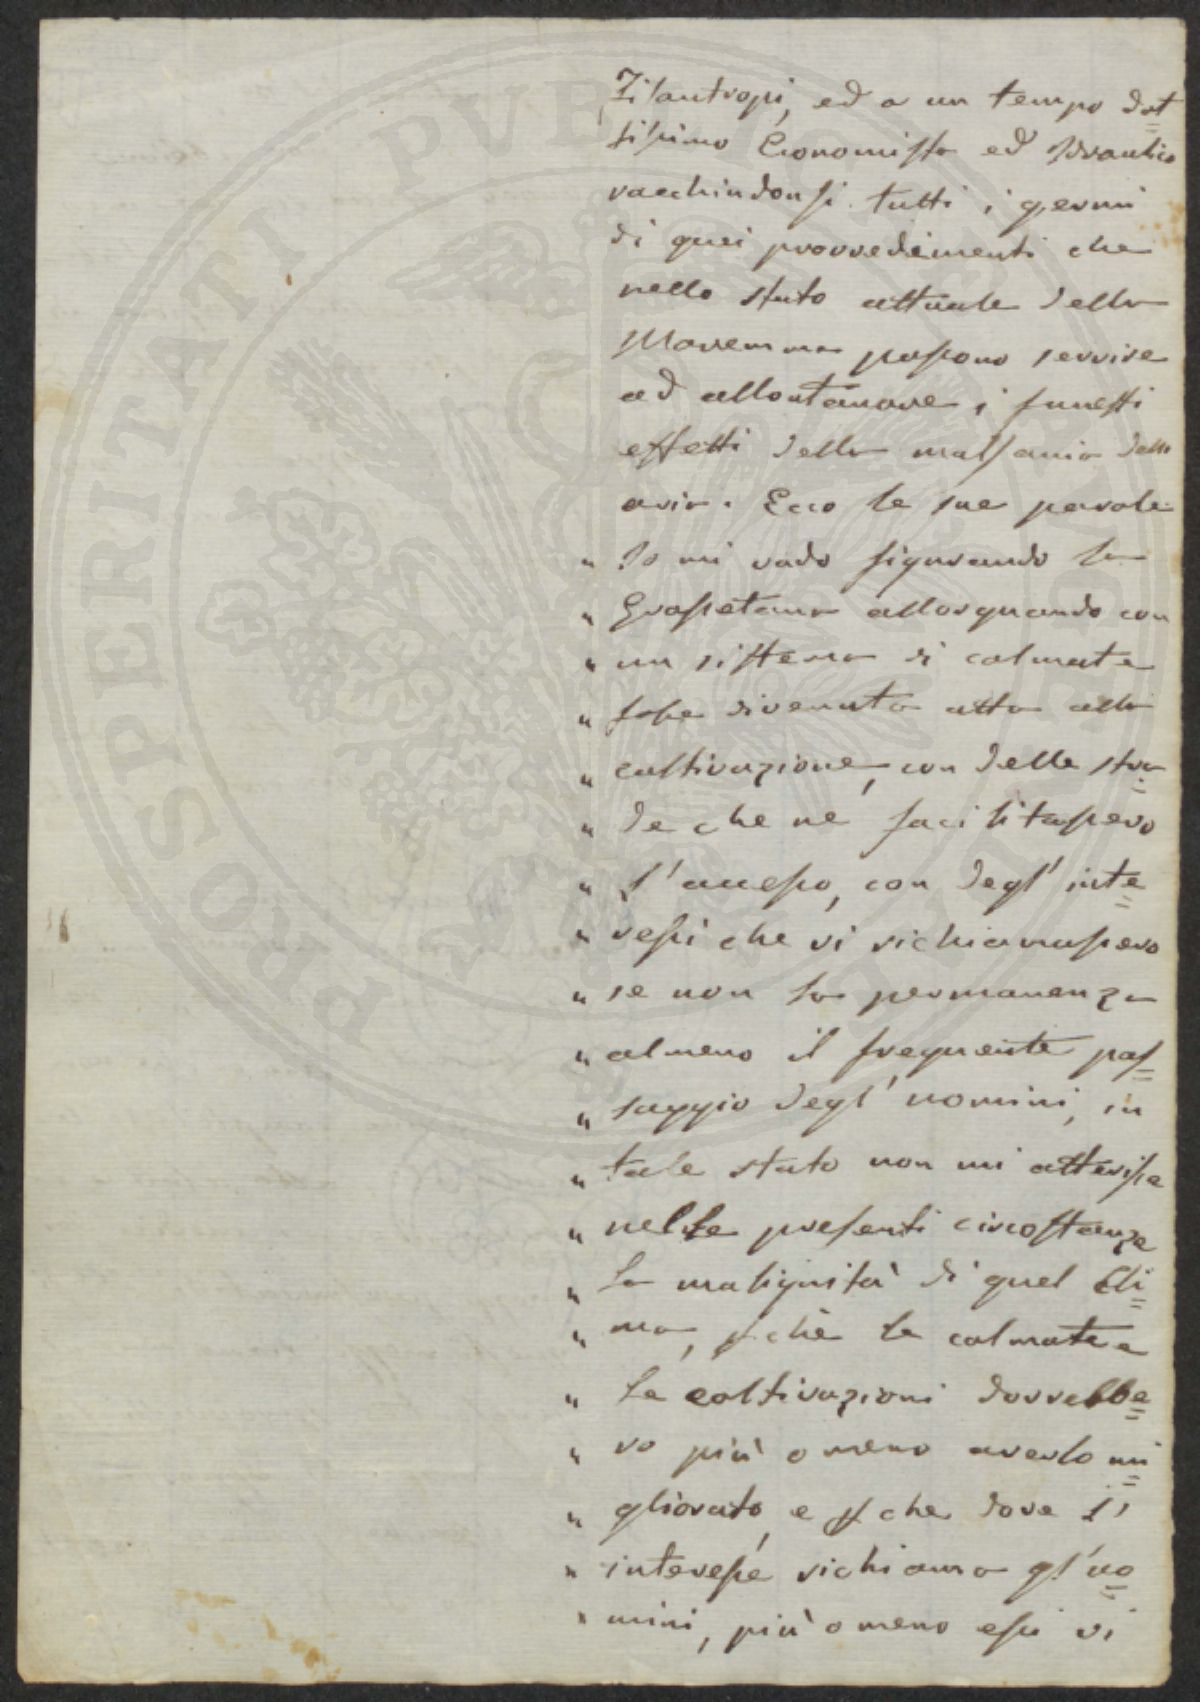 Filantropi, ed a un tempo dot=
tissimo Economista ed Idraulico
racchiudonsi tutti i germi
di quei provvedimenti che
nello stato attuale della
Maremma possono servire
ad allontanare i funesti
effetti della malsania dell'
aria. Ecco le sue parole
" Io mi vado figurando la
" Grossetana allorquando con
" un sistema di colmate
" fosse divenuta atta alla
" coltivazione, con delle stra=
" de che ne facilitassero
" l'accesso, con degl' inte=
" ressi che vi richiamassero
" se non la permanenza
" almeno il frequente pas=
" saggio degl' uomini, in
" tale stato non mi atterisce
" nelle presenti circostanze
" la malignità di quel Cli=
" ma, pchè le colmate e
" le coltivazioni dovrebbe=
" ro più o meno averlo mi=
" gliorato, e pchè dove l'
" interesse richiama gl'uo=
" mini, più o meno essi vi
PROSPERITATI PVBLICAE AVGENDAE